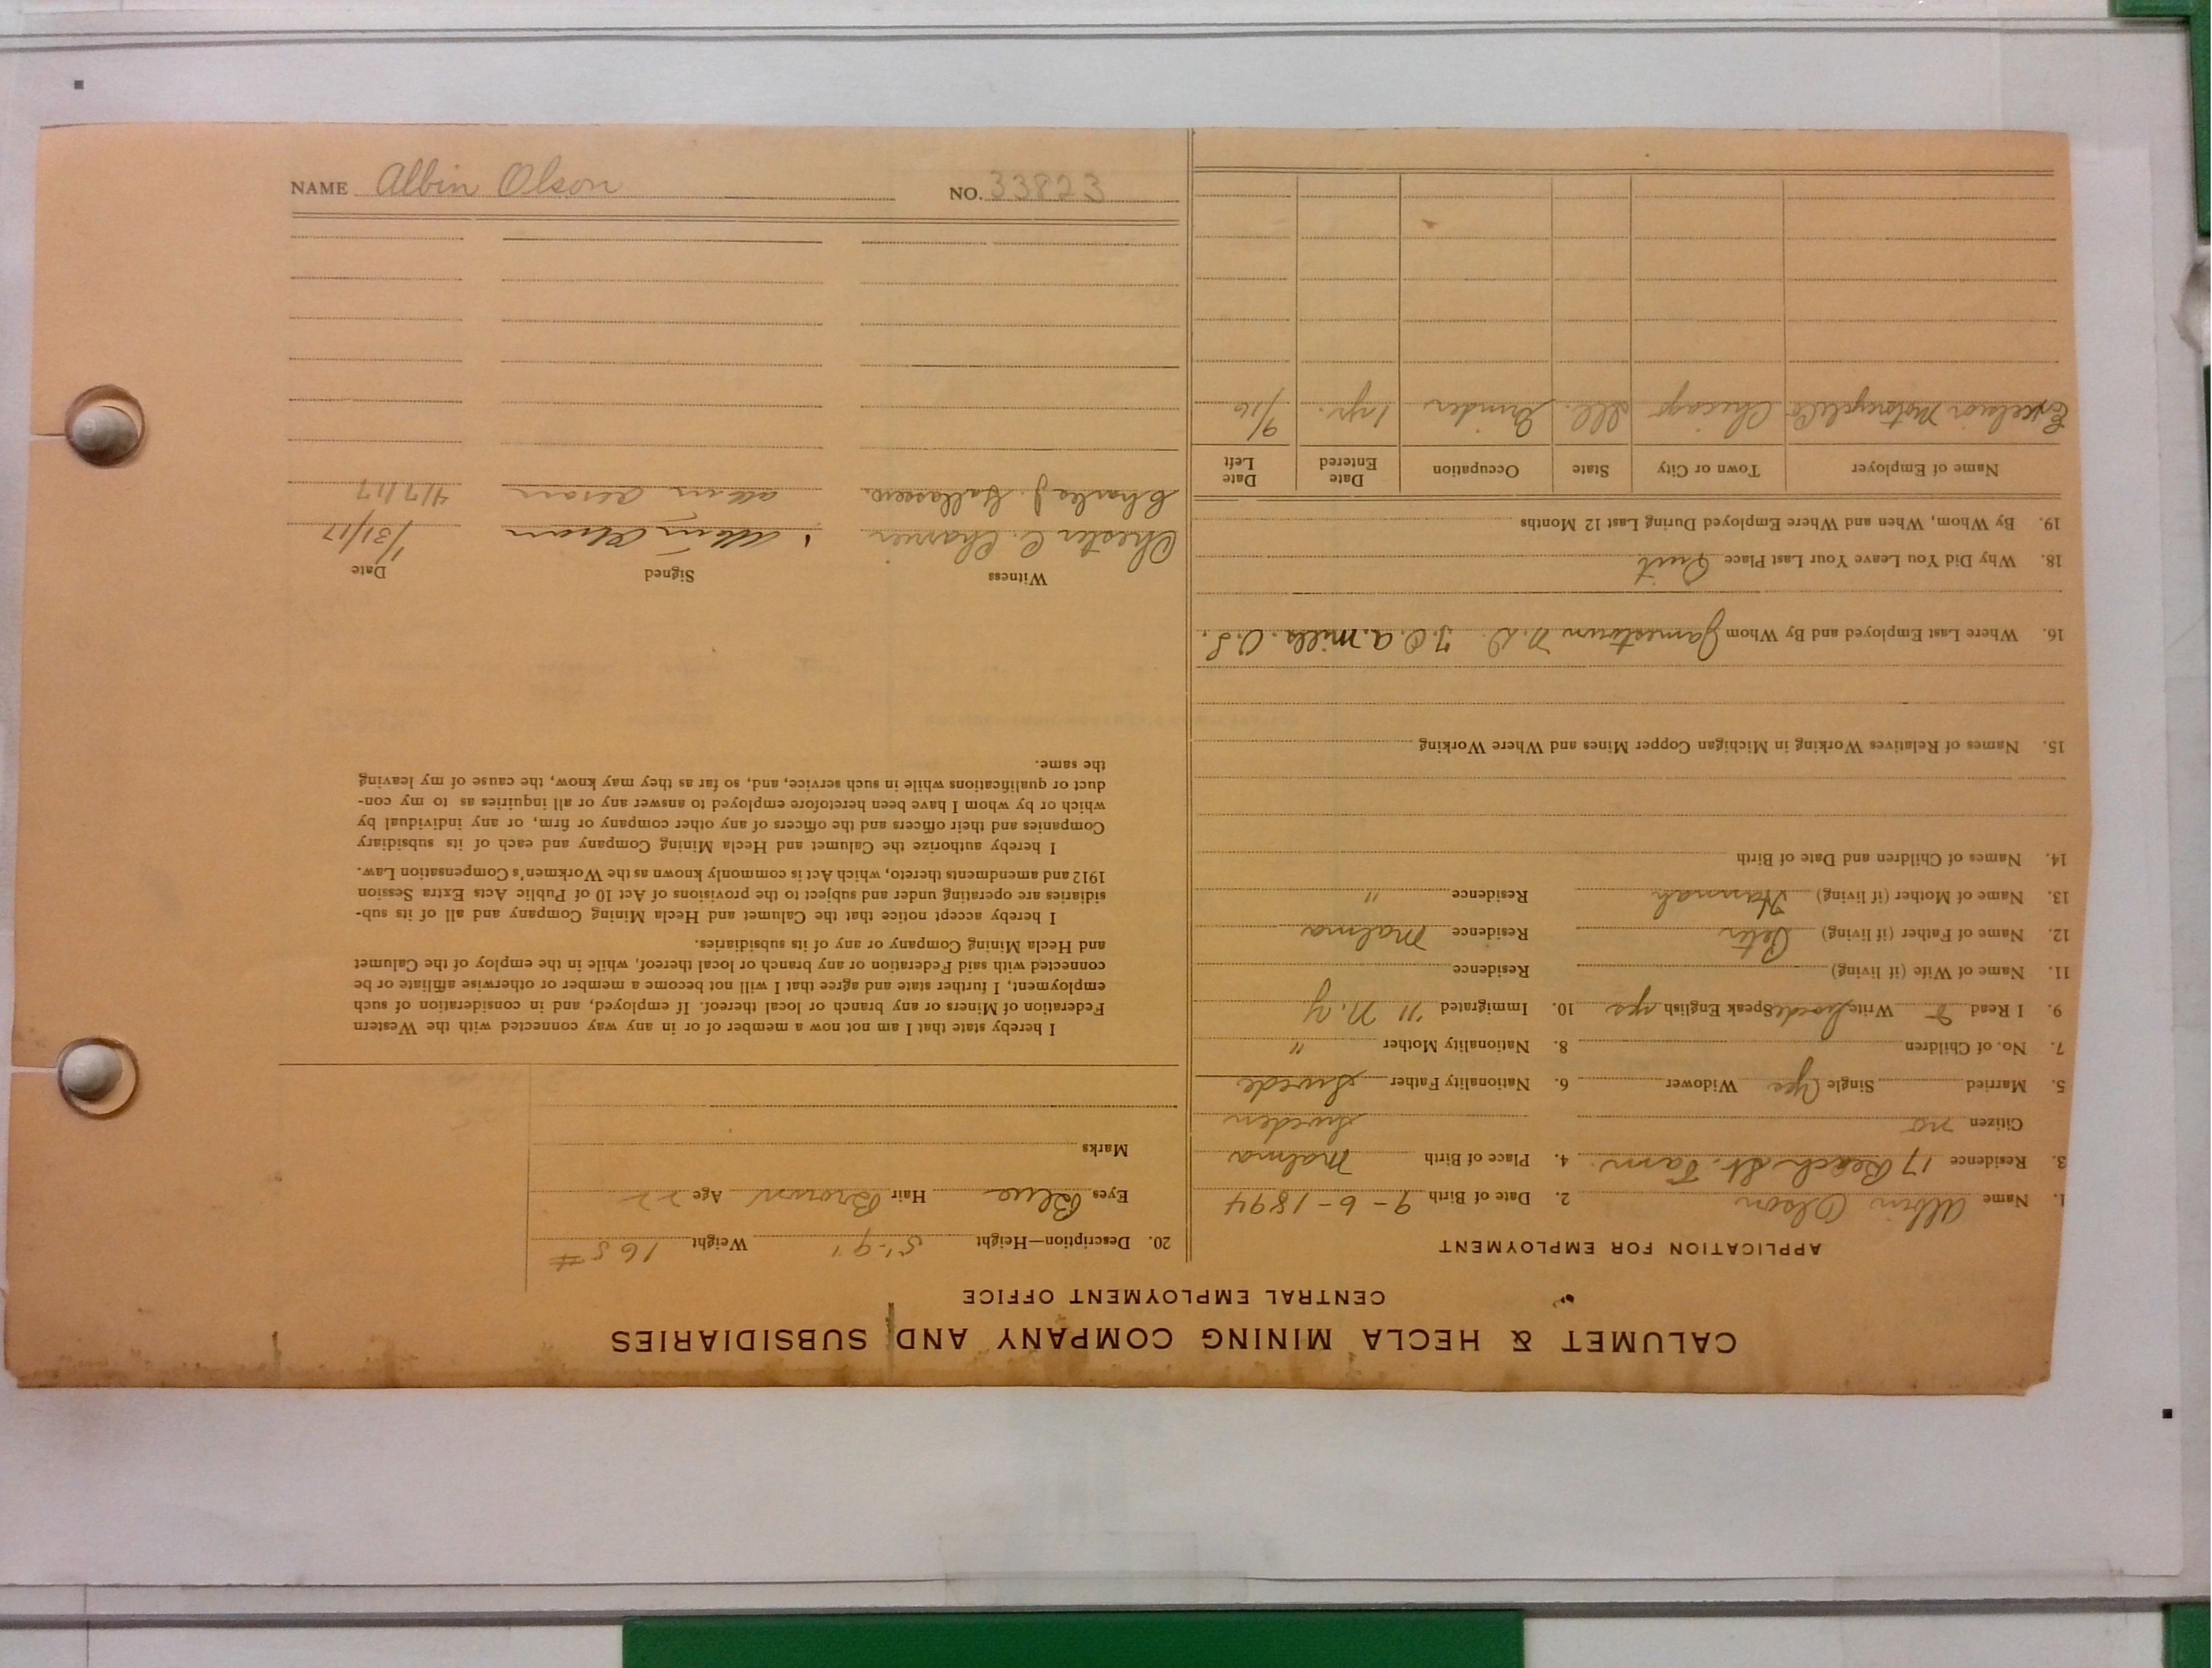 NAME Albin Olson NO. 33823
CALUMET & HECLA MINING COMPANY AND SUBSIDIARIES
CENTRAL EMPLOYMENT OFFICE
APPLICATION FOR EMPLOYMENT
1. Name Albin Olson 2. Date of Birth 9-6-1894
3. Residence 17 Beach St. Tam. 4. Place of Birth Malma
Citizen no Sweden
5. Married Single Yes Widower 6. Nationality Father Swede
7. No. of Children 8. Nationality Mother "
9. I Read & Write Swede Speak English yes 10. Immigrated '11 N.Y
11. Name of Wife (if living) Residence
12. Name of Father (if living) Peter Residence Malma
13. Name of Mother (if living) Hannah Residence "
14. Names of Children and Date of Birth
15. Names of Relatives Working in Michigan Copper Mines and Where Working
16. Where Last Employed and By Whom Jamestown N.D. mills.
18. Why Did You Leave Your Last Place Quit
19. By Whom, When and Where Employed During Last 12 Months
Name of Employer Town or City State Occupation Date Entered Date Left
Excelsior Motorcycle Co Chicago Ill. Grinder 1 yr. 9/16
20. Description—Height 5'-9" Weight 165#
Eyes Blue Hair Brown Age 22
Marks
I hereby state that I am not now a member of or in any way connected with the Western
Federation of Miners or any branch or local thereof. If employed, and in consideration of such
employment, I further state and agree that I will not become a member or otherwise affiliate or be
connected with said Federation or any branch or local thereof, while in the employ of the Calumet
and Hecla Mining Company or any of its subsidiaries.
I hereby accept notice that the Calumet and Hecla Mining Company and all of its sub-
sidiaries are operating under and subject to the provisions of Act 10 of Public Acts Extra Session
1912 and amendments thereto, which Act is commonly known as the Workmen's Compensation Law.
I hereby authorize the Calumet and Hecla Mining Company and each of its subsidiary
Companies and their officers and the officers of any other company or firm, or any individual by
which or by whom I have been heretofore employed to answer any or all inquiries as to my con-
duct or qualifications while in such service, and, so far as they may know, the cause of my leaving
the same.
Witness Signed Date
Chester C. Charrier Albin Olson 1/31/17
Charles J. Albin Olson 4/7/17